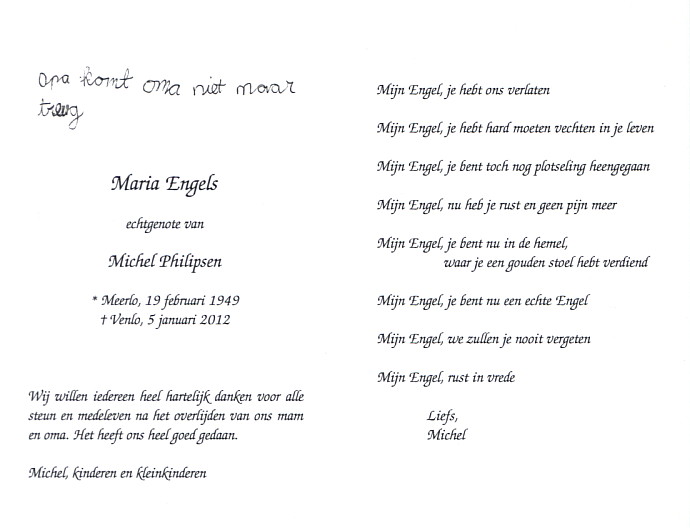 opa komt oma niet maar
treug
Maria Engels
echtgenote van
Michel Philipsen
* Meerlo, 19 februari 1949
† Venlo, 5 januari 2012
Wij willen iedereen heel hartelijk danken voor alle
steun en medeleven na het overlijden van ons mam
en oma. Het heeft ons heel goed gedaan.
Michel, kinderen en kleinkinderen
Mijn Engel, je hebt ons verlaten
Mijn Engel, je hebt hard moeten vechten in je leven
Mijn Engel, je bent toch nog plotseling heengegaan
Mijn Engel, nu heb je rust en geen pijn meer
Mijn Engel, je bent nu in de hemel,
waar je een gouden stoel hebt verdiend
Mijn Engel, je bent nu een echte Engel
Mijn Engel, we zullen je nooit vergeten
Mijn Engel, rust in vrede
Liefs,
Michel